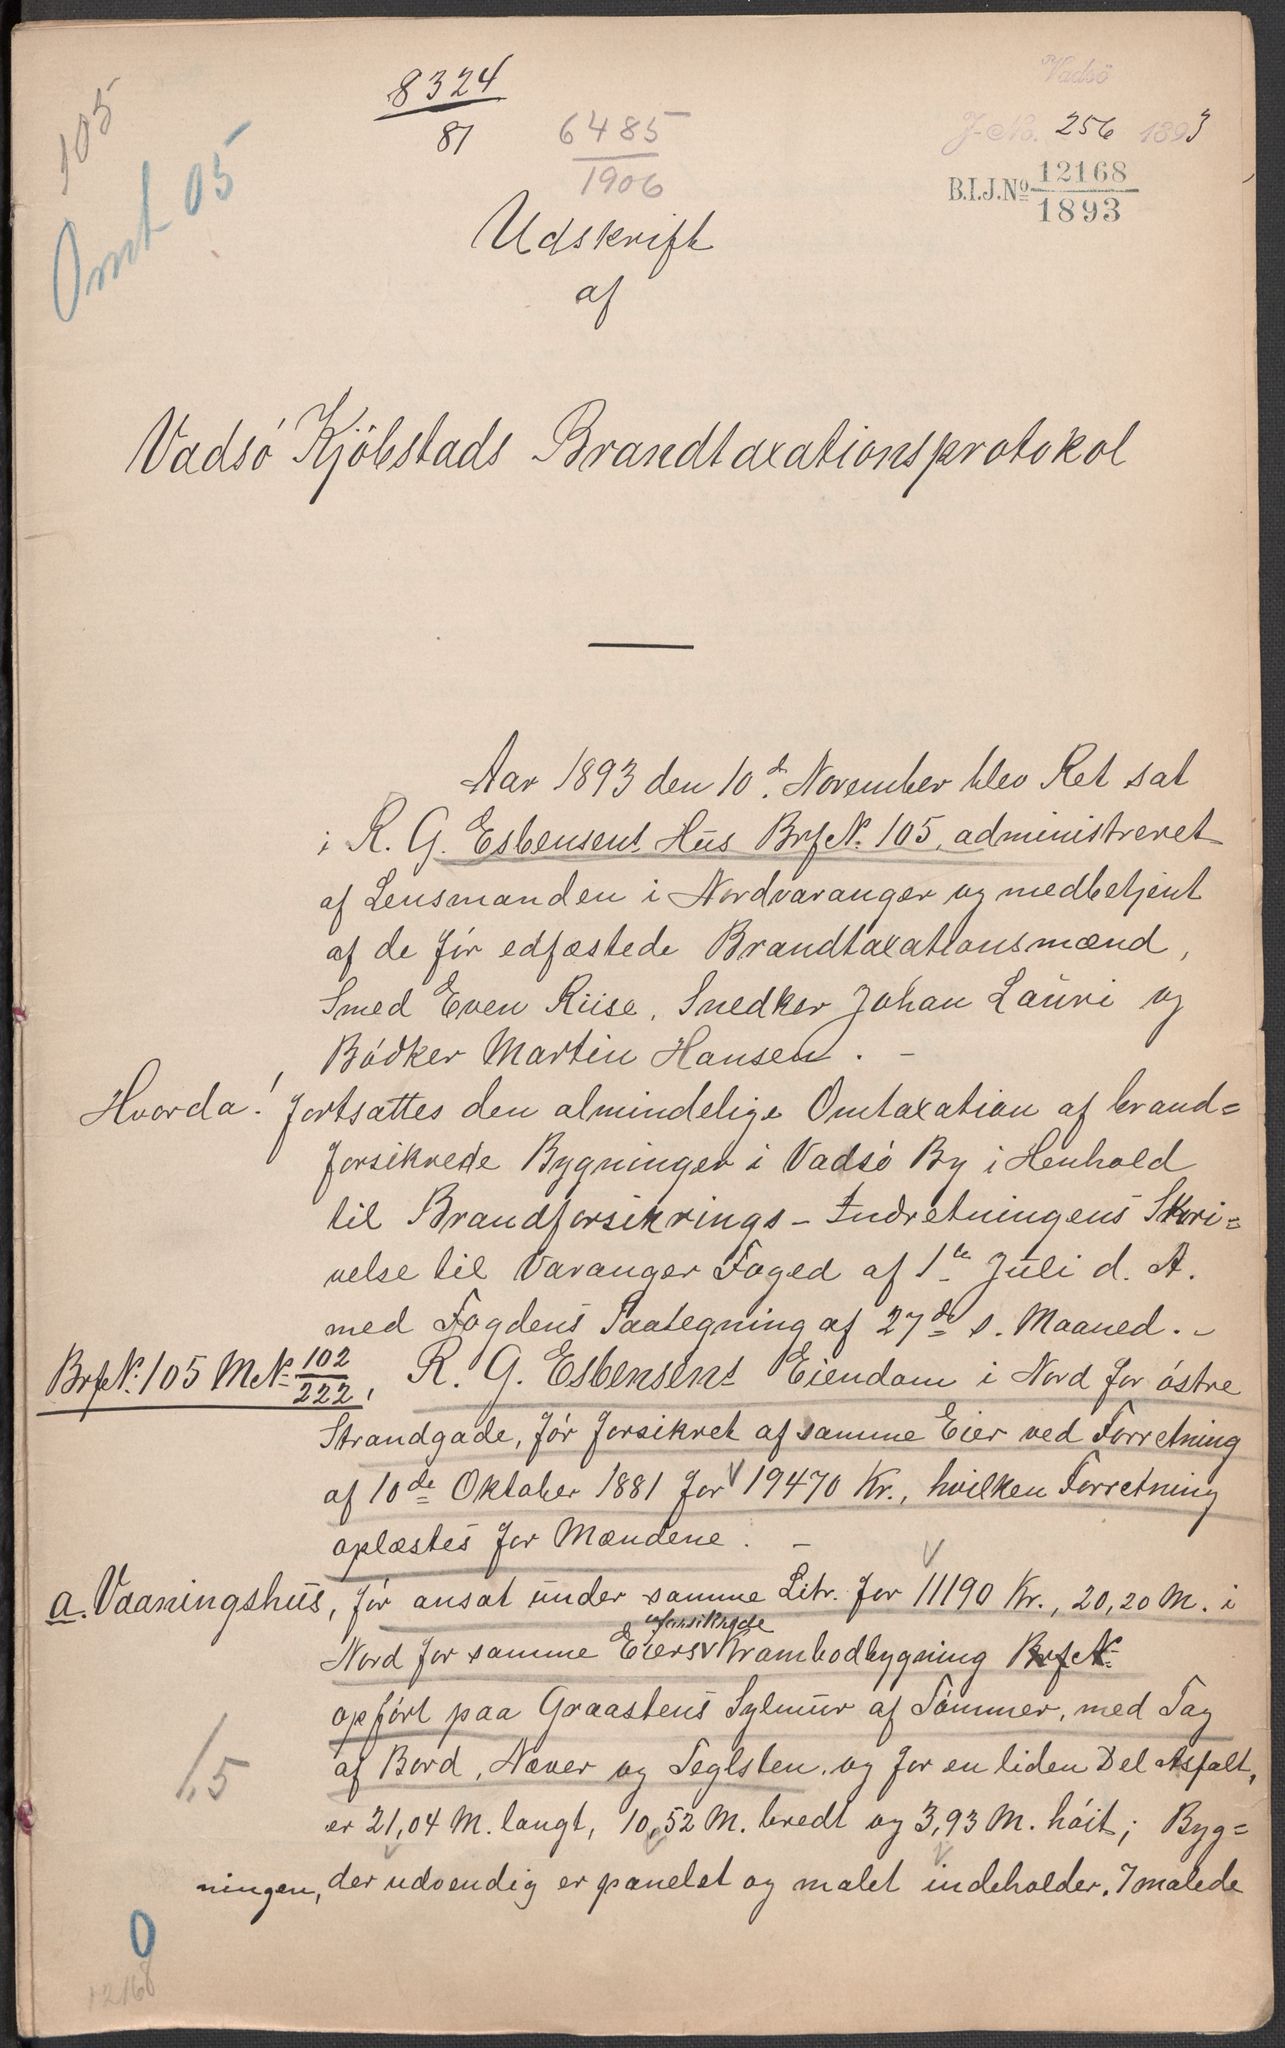 105
Omt 05
8324
81
6485
1906
Vadsö
J-No. 256 1893
B.I.J.No 12168
1893
Udskrift
af
Vadsö Kjöbstads Brandtaxationsprotokol
Aar 1893 den 10de November blev Ret sat
i R. G. Esbensens Hus Brf.N. 105, administreret
af Lensmanden i Nordvaranger og medbetjent
af de før edfæstede Brandtaxationsmænd,
Smed Even Riise, Snedker Johan Lauri og
Bödker Martin Hansen. -
Hvorda! fortsattes den almindelige Omtaxation af brand=
forsikrede Bygninger i Vadsö By i Henhold
til Brandforsikrings-Indretningens Skri=
velse til Varanger Foged af 1te Juli d. A.
med Fogdens Paategning af 27de s. Maaned. -
Brf.N. 105 M.N. 102/222, R. G. Esbensens Eiendom i Nord for östre
Strandgade, før forsikret af samme Eier ved Forretning
af 10de Oktober 1881 for 19470 Kr., hvilken Forretning
oplæstes for Mændene. -
a. Vaaningshus, før ansat under samme Litr. for 11190 Kr., 20,20 M. i
uforsikrede
Nord for samme Eiers Krambodbygning Brf.N.
opført paa Graastens Sylmur af Tömmer, med Tag
af Bord, Næver og Teglsten, og for en liden Del Asfalt,
1,5
er 21,04 M. langt, 10,52 M. bredt og 3,93 M. höit; Byg=
ningen, der udvendig er panelet og malet indeholder. 7 malede
0
12168